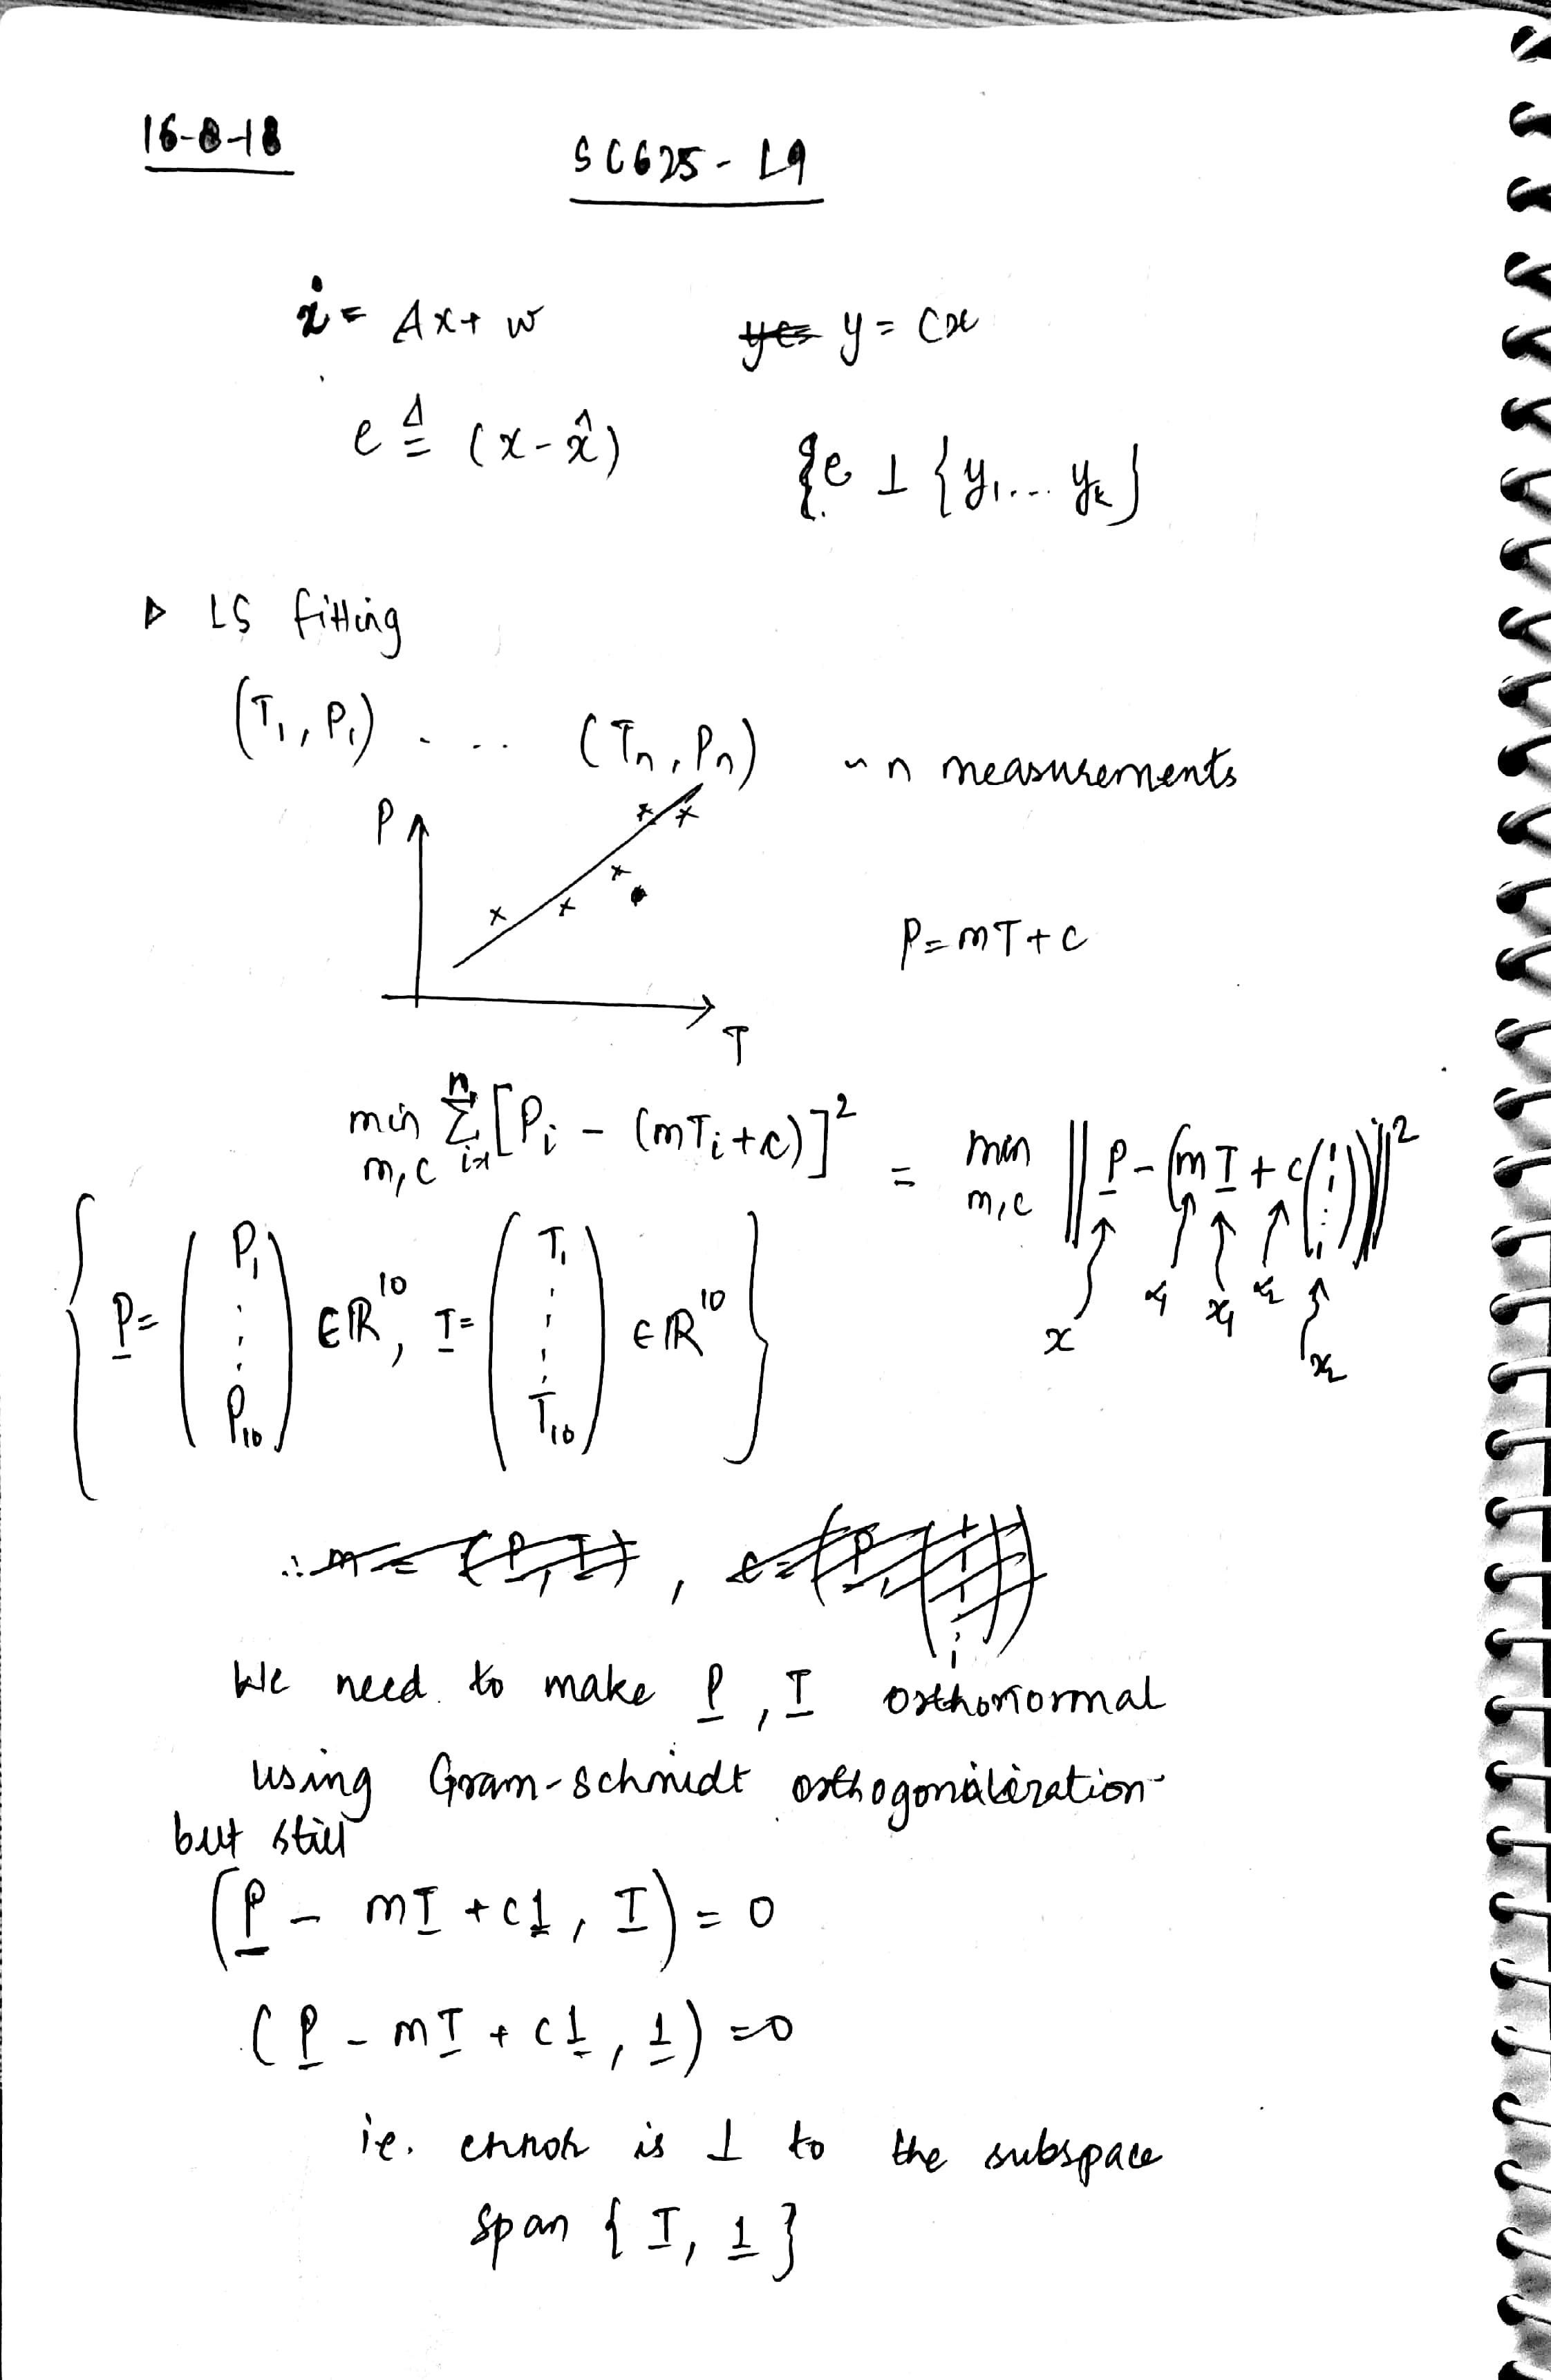 16-8-18
SC625 - L9
ẋ = Ax + w y = Cx
e ≜ (x - x̂) {e ⊥ {y₁... yₖ}
▷ LS fitting
(T₁, P₁) . ... (Tn, Pn) ~ n measurements
P
P = mT + c
T
min m,c n Σ i=1 [Pi - (mTi + c)]² = min m,c ‖P - (mT + c(1 1 ⋮ 1))‖²
x α₁ x₁ α₂ x₂
{ P = (P₁ ⋮ P₁₀) ∈ ℝ¹⁰, T = (T₁ ⋮ T₁₀) ∈ ℝ¹⁰ }
We need to make P, T orthonormal
using Gram-Schmidt orthogonalization
but still
(P - mT + c1, T) = 0
(P - mT + c1, 1) = 0
ie. error is ⊥ to the subspace
span {T, 1}